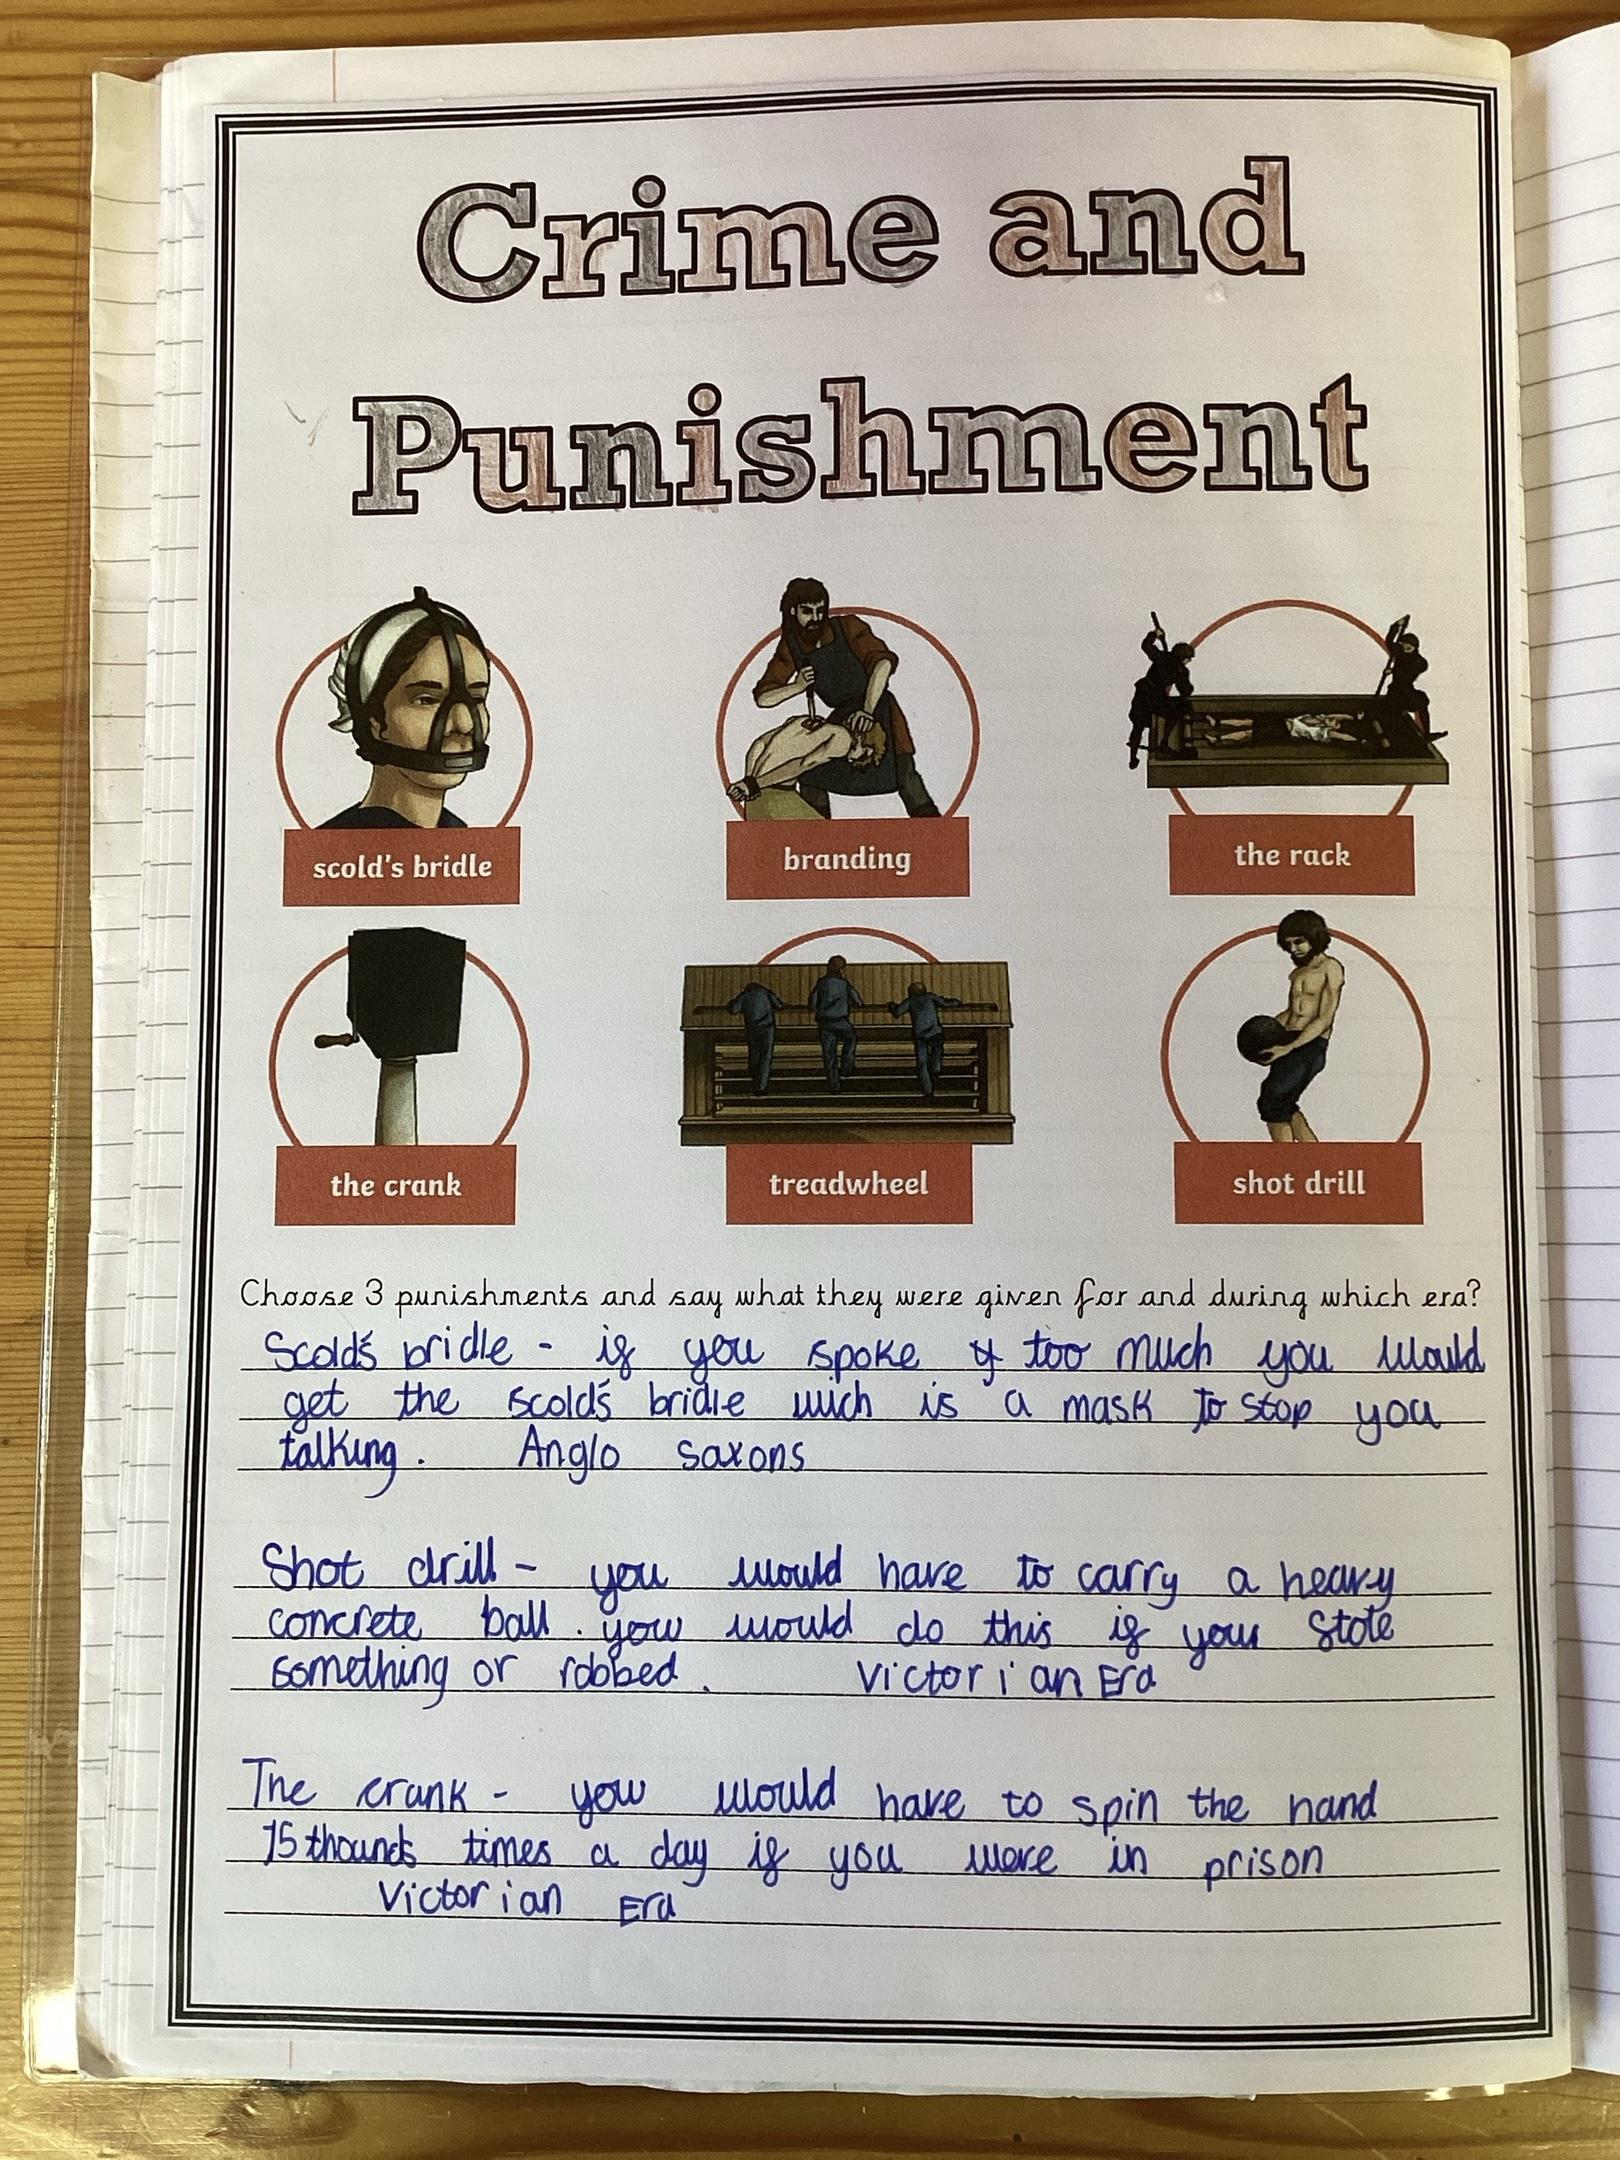 Crime and
Punishment
scold's bridle
branding
the rack
the crank
treadwheel
shot drill
Choose 3 punishments and say what they were given for and during which era?
Scold's bridle - if you spoke too much you would
get the scold's bridle wich is a mask to stop you
talking. Anglo saxons
Shot drill - you would have to carry a heavy
concrete ball. you would do this if you stole
something or robbed. Victorian Era
The crank - you would have to spin the hand
15 thounds times a day if you were in prison
Victorian Era